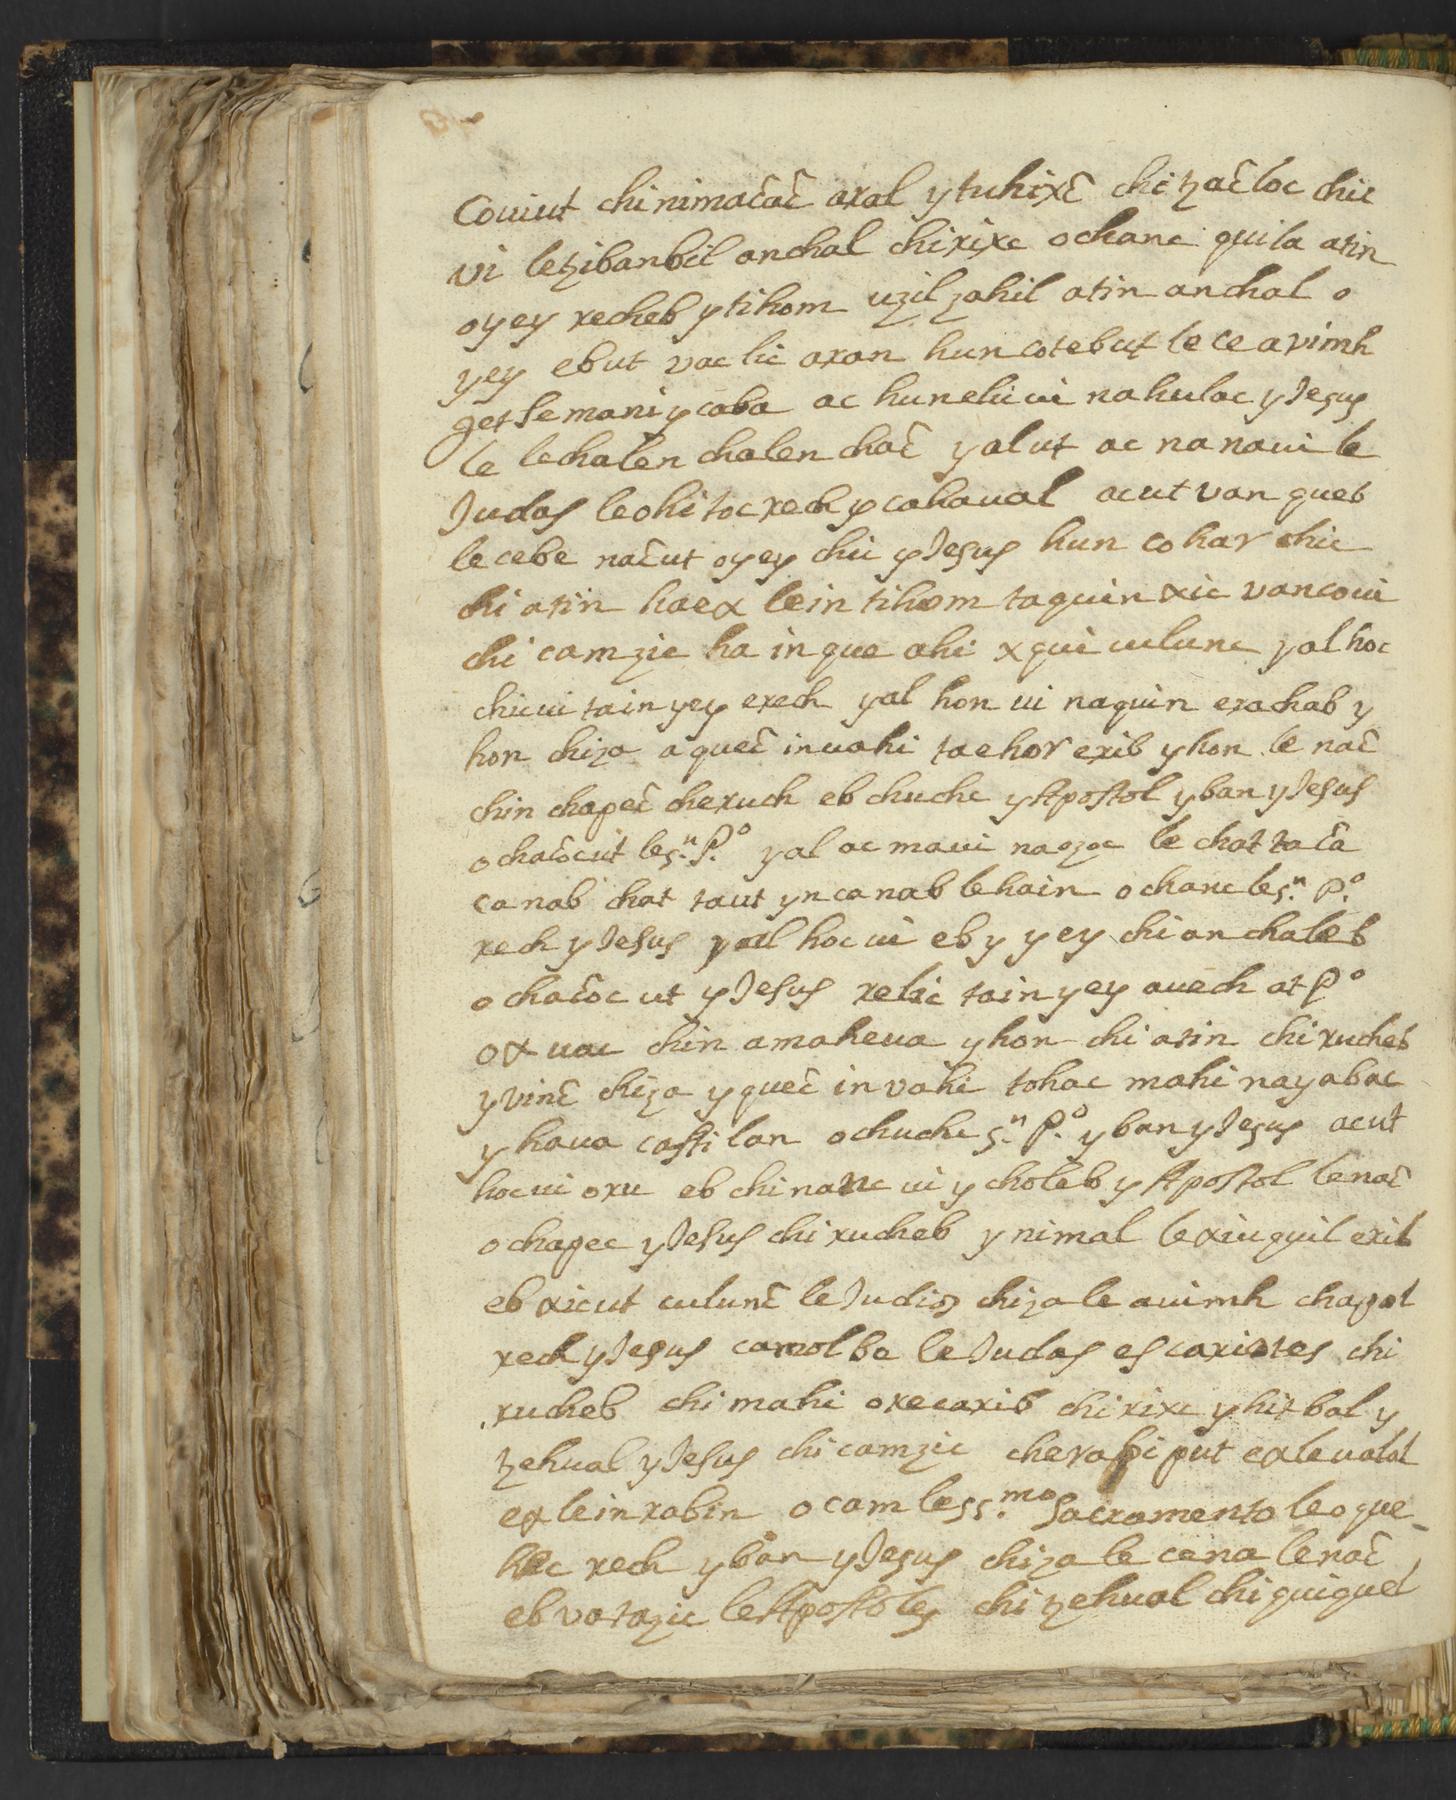 Couiut chi nimac̄ac̄ axal y tuhixc̄ chi tzac̄loc chic
vi letzibanbil anchal chirixc ochanc quila atin
oyey recheb y tihom uzil zahil atin anchal o
yey ebut vaclic axan hun cotebut le ce avimh
getsemani y caba ac hunelic ui nahulac y Jesus
le lechalen chalen chac̄ yalut ac na naui le
Judas leohi toc rech y cahaual acut van queb
lecebe nac̄ut oyey chic y Jesus hun cohar chic
chi atin haex lein tihom taquin xic vancoui
chi camzic ha in que ahi xqui culunc yal hoc
chicui tain yey erech yal hon ui naquin exachab y
hon chiza aquec̄ inuahi taehor exib yhon le nac̄
chin chapec̄ cheruch eb chuchc y Apostol yban y Jesus
ochac̄ocut le s.n P.o yal ac maui naozoc le chat tac̄a
canab chat taut yn canab lehain ochanc le s.n P.o
rech y Jesus yal hoc ui eb y yey chi anchaleb
ochac̄oc ut y Jesus relic tain yey auech at P.o
ox uac chin amaheua yhon chi atin chirucheb
yvinc̄ chiza yquec̄ in vahi tohac mahi nayabac
y haua castilan ochuchc s.n P.o yban y Jesus acut
hoc ui oxu eb chi nanc ui y choleb y Apostol le nac̄
ochapec y Jesus chi rucheb y nimal le xiuquil exil
eb xicut culunc̄ le Judios chiza le auimh chapol
rech y Jesus camol be le Judas escariotes chi
rucheb chi mahi oxecaxib chirixc y hitbal y
tzehual y Jesus chi camzic cherahi put ex leualal
ex lein rabin ocam le ss.mo Sacramento leoque
hec rech yban y Jesus chiza le cena le nac̄
eb vatazic le Apostoles chi tzehual chi quiquel